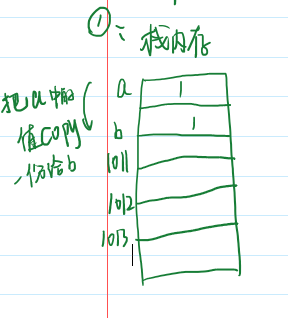 ①: 栈内存
a 1
把a中的
值copy
一份给b
b 1
1011
1012
1013